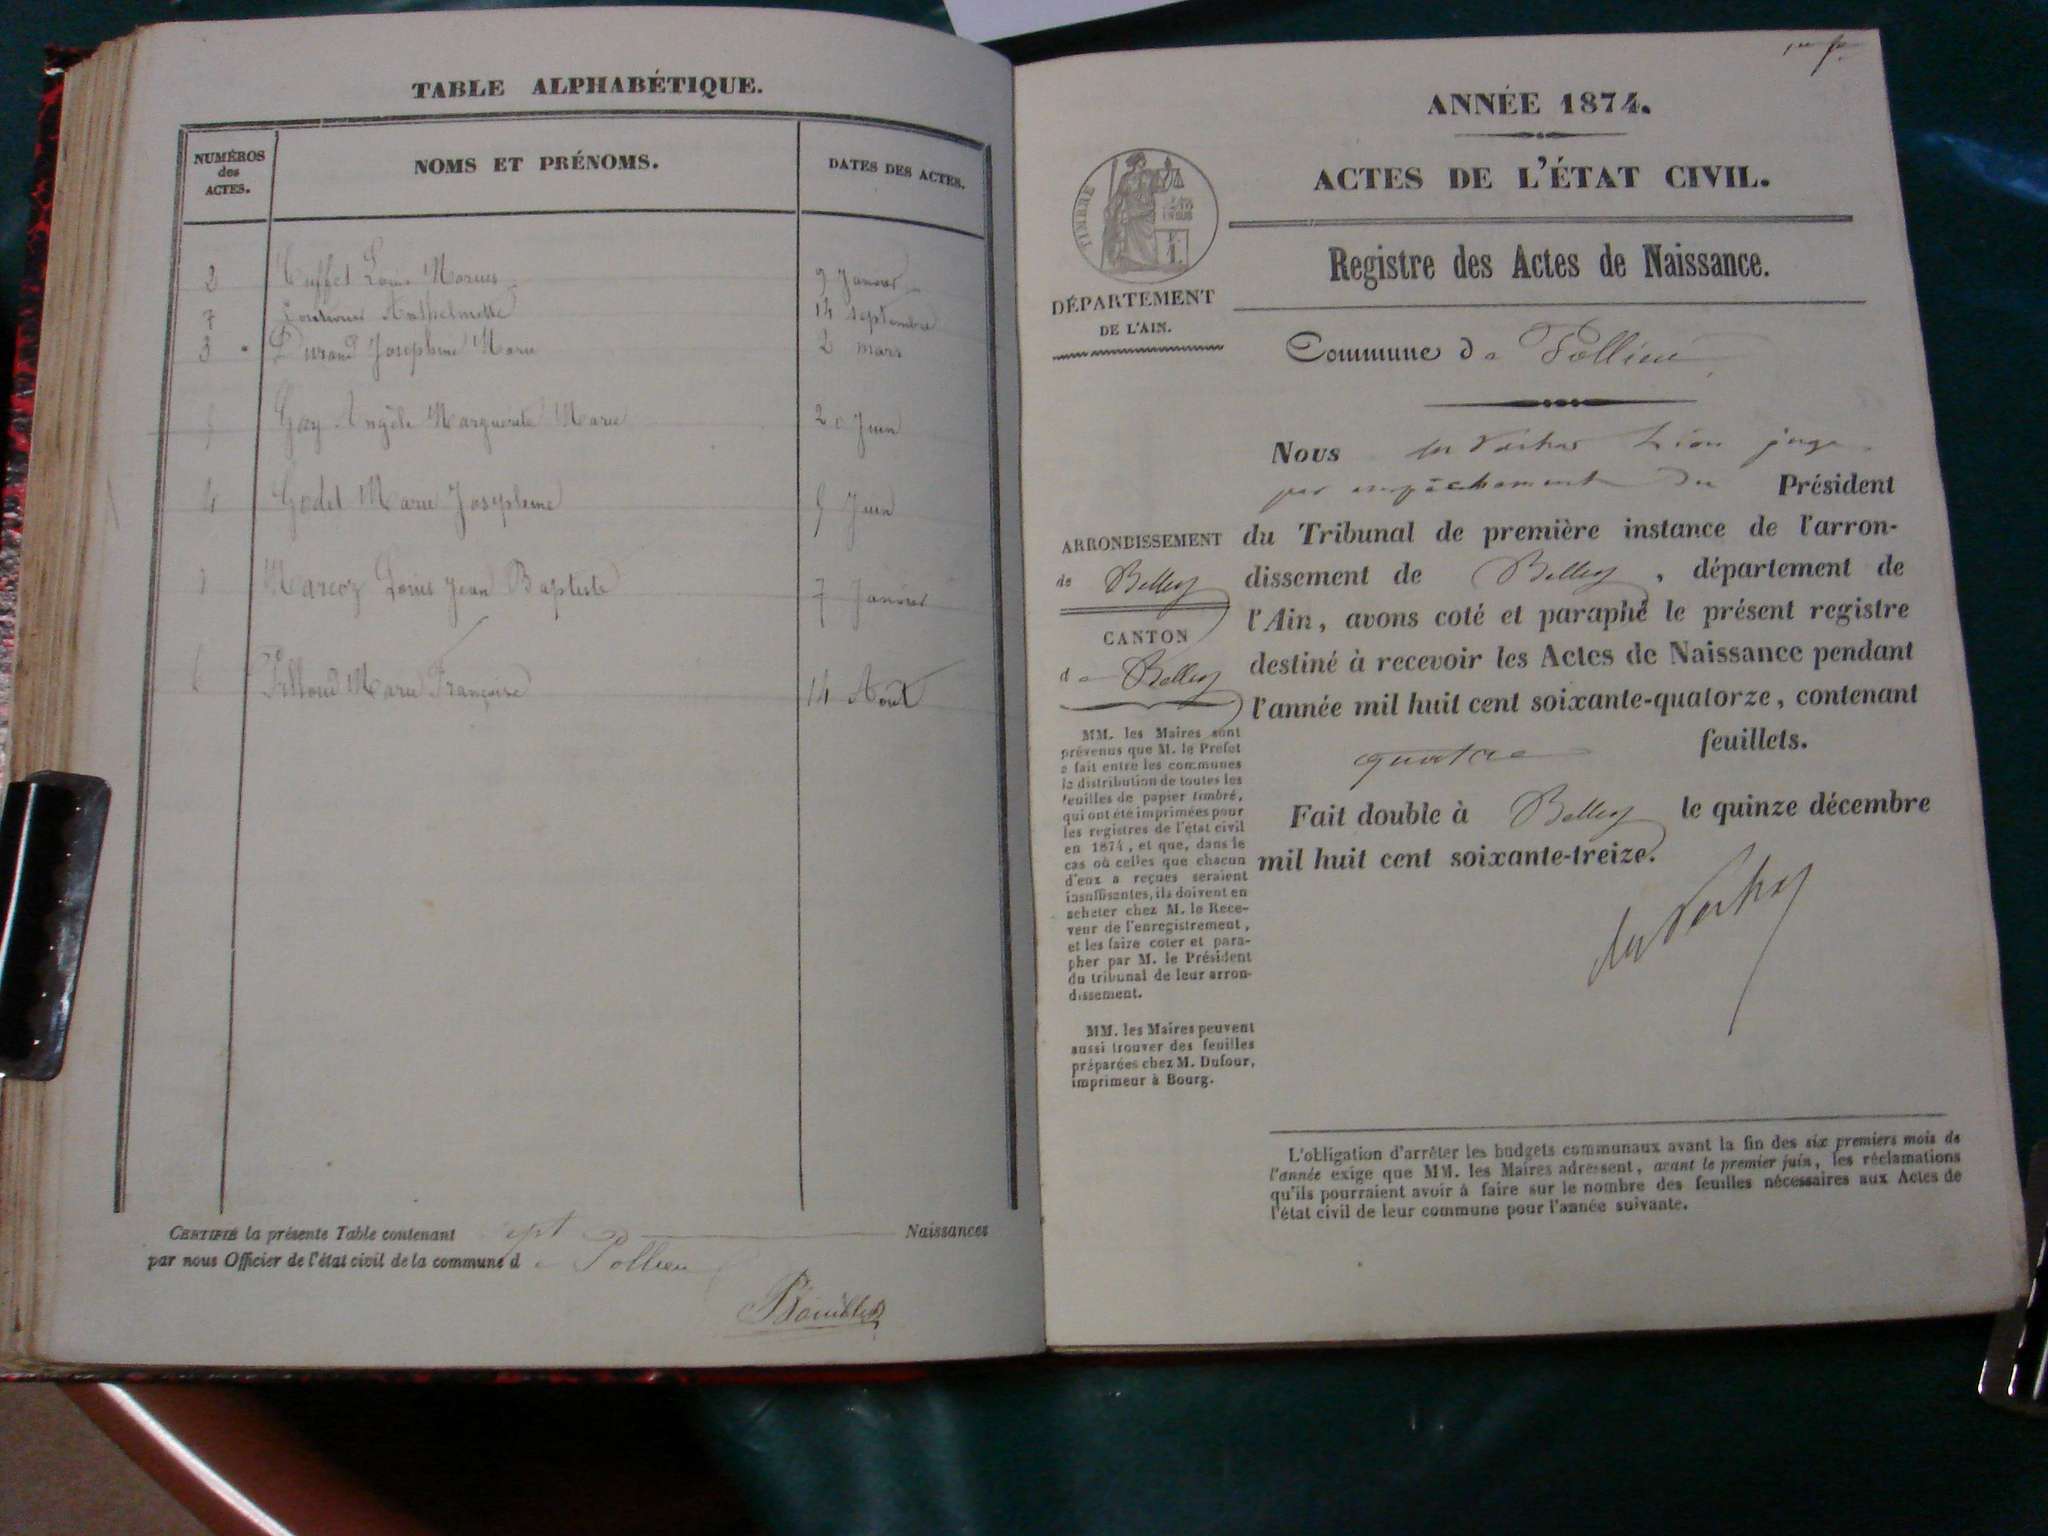 TABLE ALPHABÉTIQUE.
NUMÉROS des ACTES.
NOMS ET PRÉNOMS.
DATES DES ACTES.
2 Cuffet Louis Marius 9 Janvier
7 Anthelmette 14 septembre
3 Durand Joséphine Marie 2 mars
5 Gay Angèle Marguerite Marie 20 Juin
4 Godet Marie Joséphine 5 Juin
1 Marcoz Louis Jean Baptiste 7 Janvier
6 Marie Françoise 14 Août
CERTIFIÉ la présente Table contenant sept Naissances
par nous Officier de l'état civil de la commune d e Pollieu
1er f.
ANNÉE 1874.
ACTES DE L'ÉTAT CIVIL.
TIMBRE
Registre des Actes de Naissance.
DÉPARTEMENT
DE L'AIN.
Commune d e Pollieu
Nous juge
par empêchement du Président
du Tribunal de première instance de l'arron-
dissement de Belley, département de
l'Ain, avons coté et paraphé le présent registre
destiné à recevoir les Actes de Naissance pendant
l'année mil huit cent soixante-quatorze, contenant
quatre feuillets.
Fait double à Belley le quinze décembre
mil huit cent soixante-treize.
ARRONDISSEMENT
de Belley
CANTON
d e Belley
MM. les Maires sont
prévenus que M. le Préfet
a fait entre les communes
la distribution de toutes les
feuilles de papier timbré,
qui ont été imprimées pour
les registres de l'état civil
en 1874, et que, dans le
cas où celles que chacun
d'eux a reçues seraient
insuffisantes, ils doivent en
acheter chez M. le Rece-
veur de l'enregistrement,
et les faire coter et para-
pher par M. le Président
du tribunal de leur arron-
dissement.
MM. les Maires peuvent
aussi trouver des feuilles
préparées chez M. Dufour,
imprimeur à Bourg.
L'obligation d'arrêter les budgets communaux avant la fin des six premiers mois de
l'année exige que MM. les Maires adressent, avant le premier juin, les réclamations
qu'ils pourraient avoir à faire sur le nombre des feuilles nécessaires aux Actes de
l'état civil de leur commune pour l'année suivante.